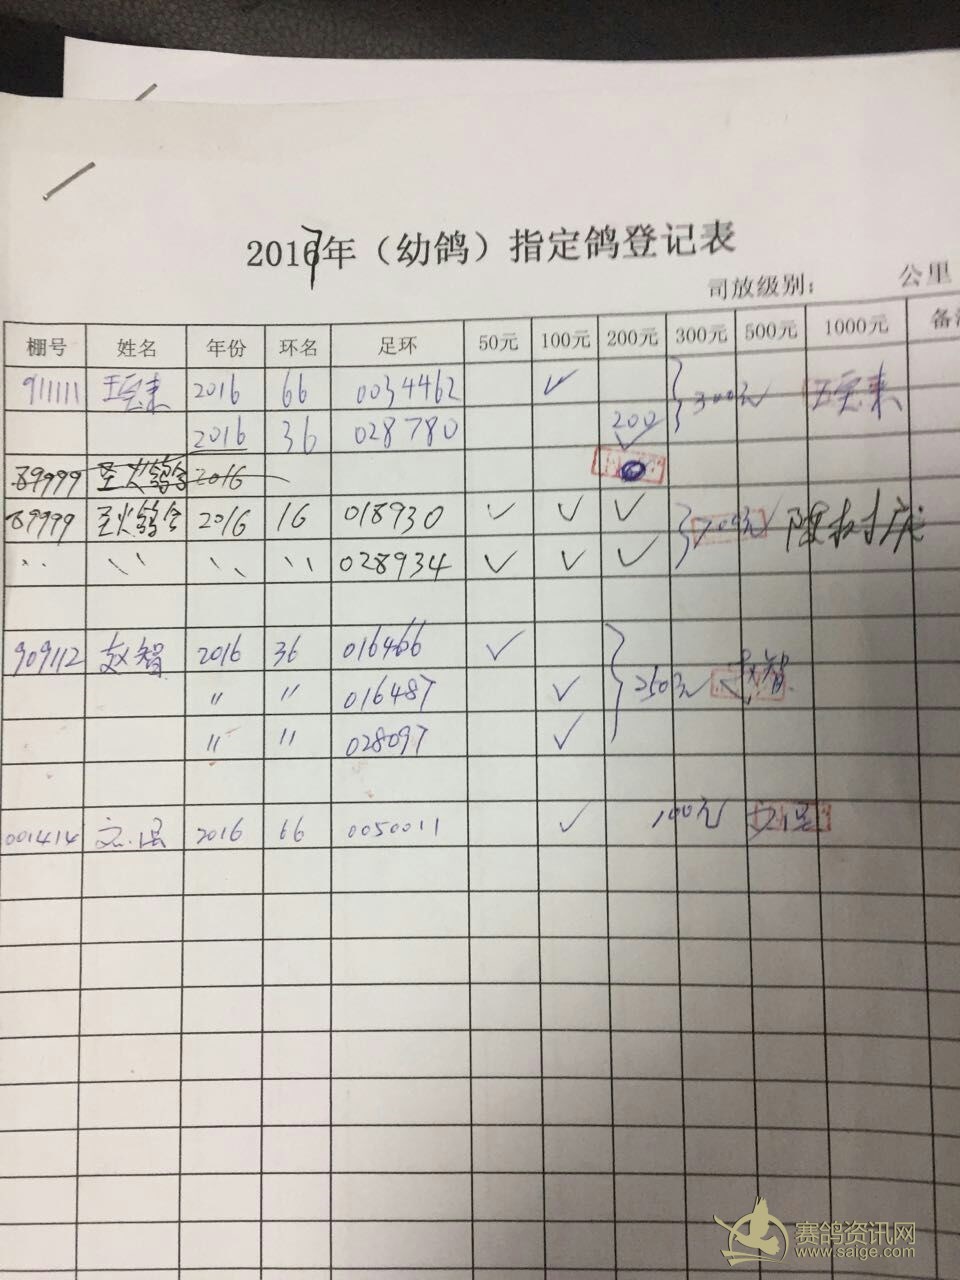 2017年（幼鸽）指定鸽登记表
司放级别： 公里
棚号 姓名 年份 环名 足环 50元 100元 200元 300元 500元 1000元 备
911111 王宝来 2016 66 0034462 ✓ 300元 王宝来
2016 36 028780 200 ✓
89999 圣火鸽舍 2016
89999 圣火鸽舍 2016 16 018930 ✓ ✓ ✓ 700元
〃 〃 〃 〃 028934 ✓ ✓ ✓
909112 赵智 2016 36 016466 ✓
〃 〃 016487 ✓ 250元 赵智
〃 〃 028097 ✓
001414 2016 66 0050011 ✓ 100元
赛鸽资讯网
www.saige.com